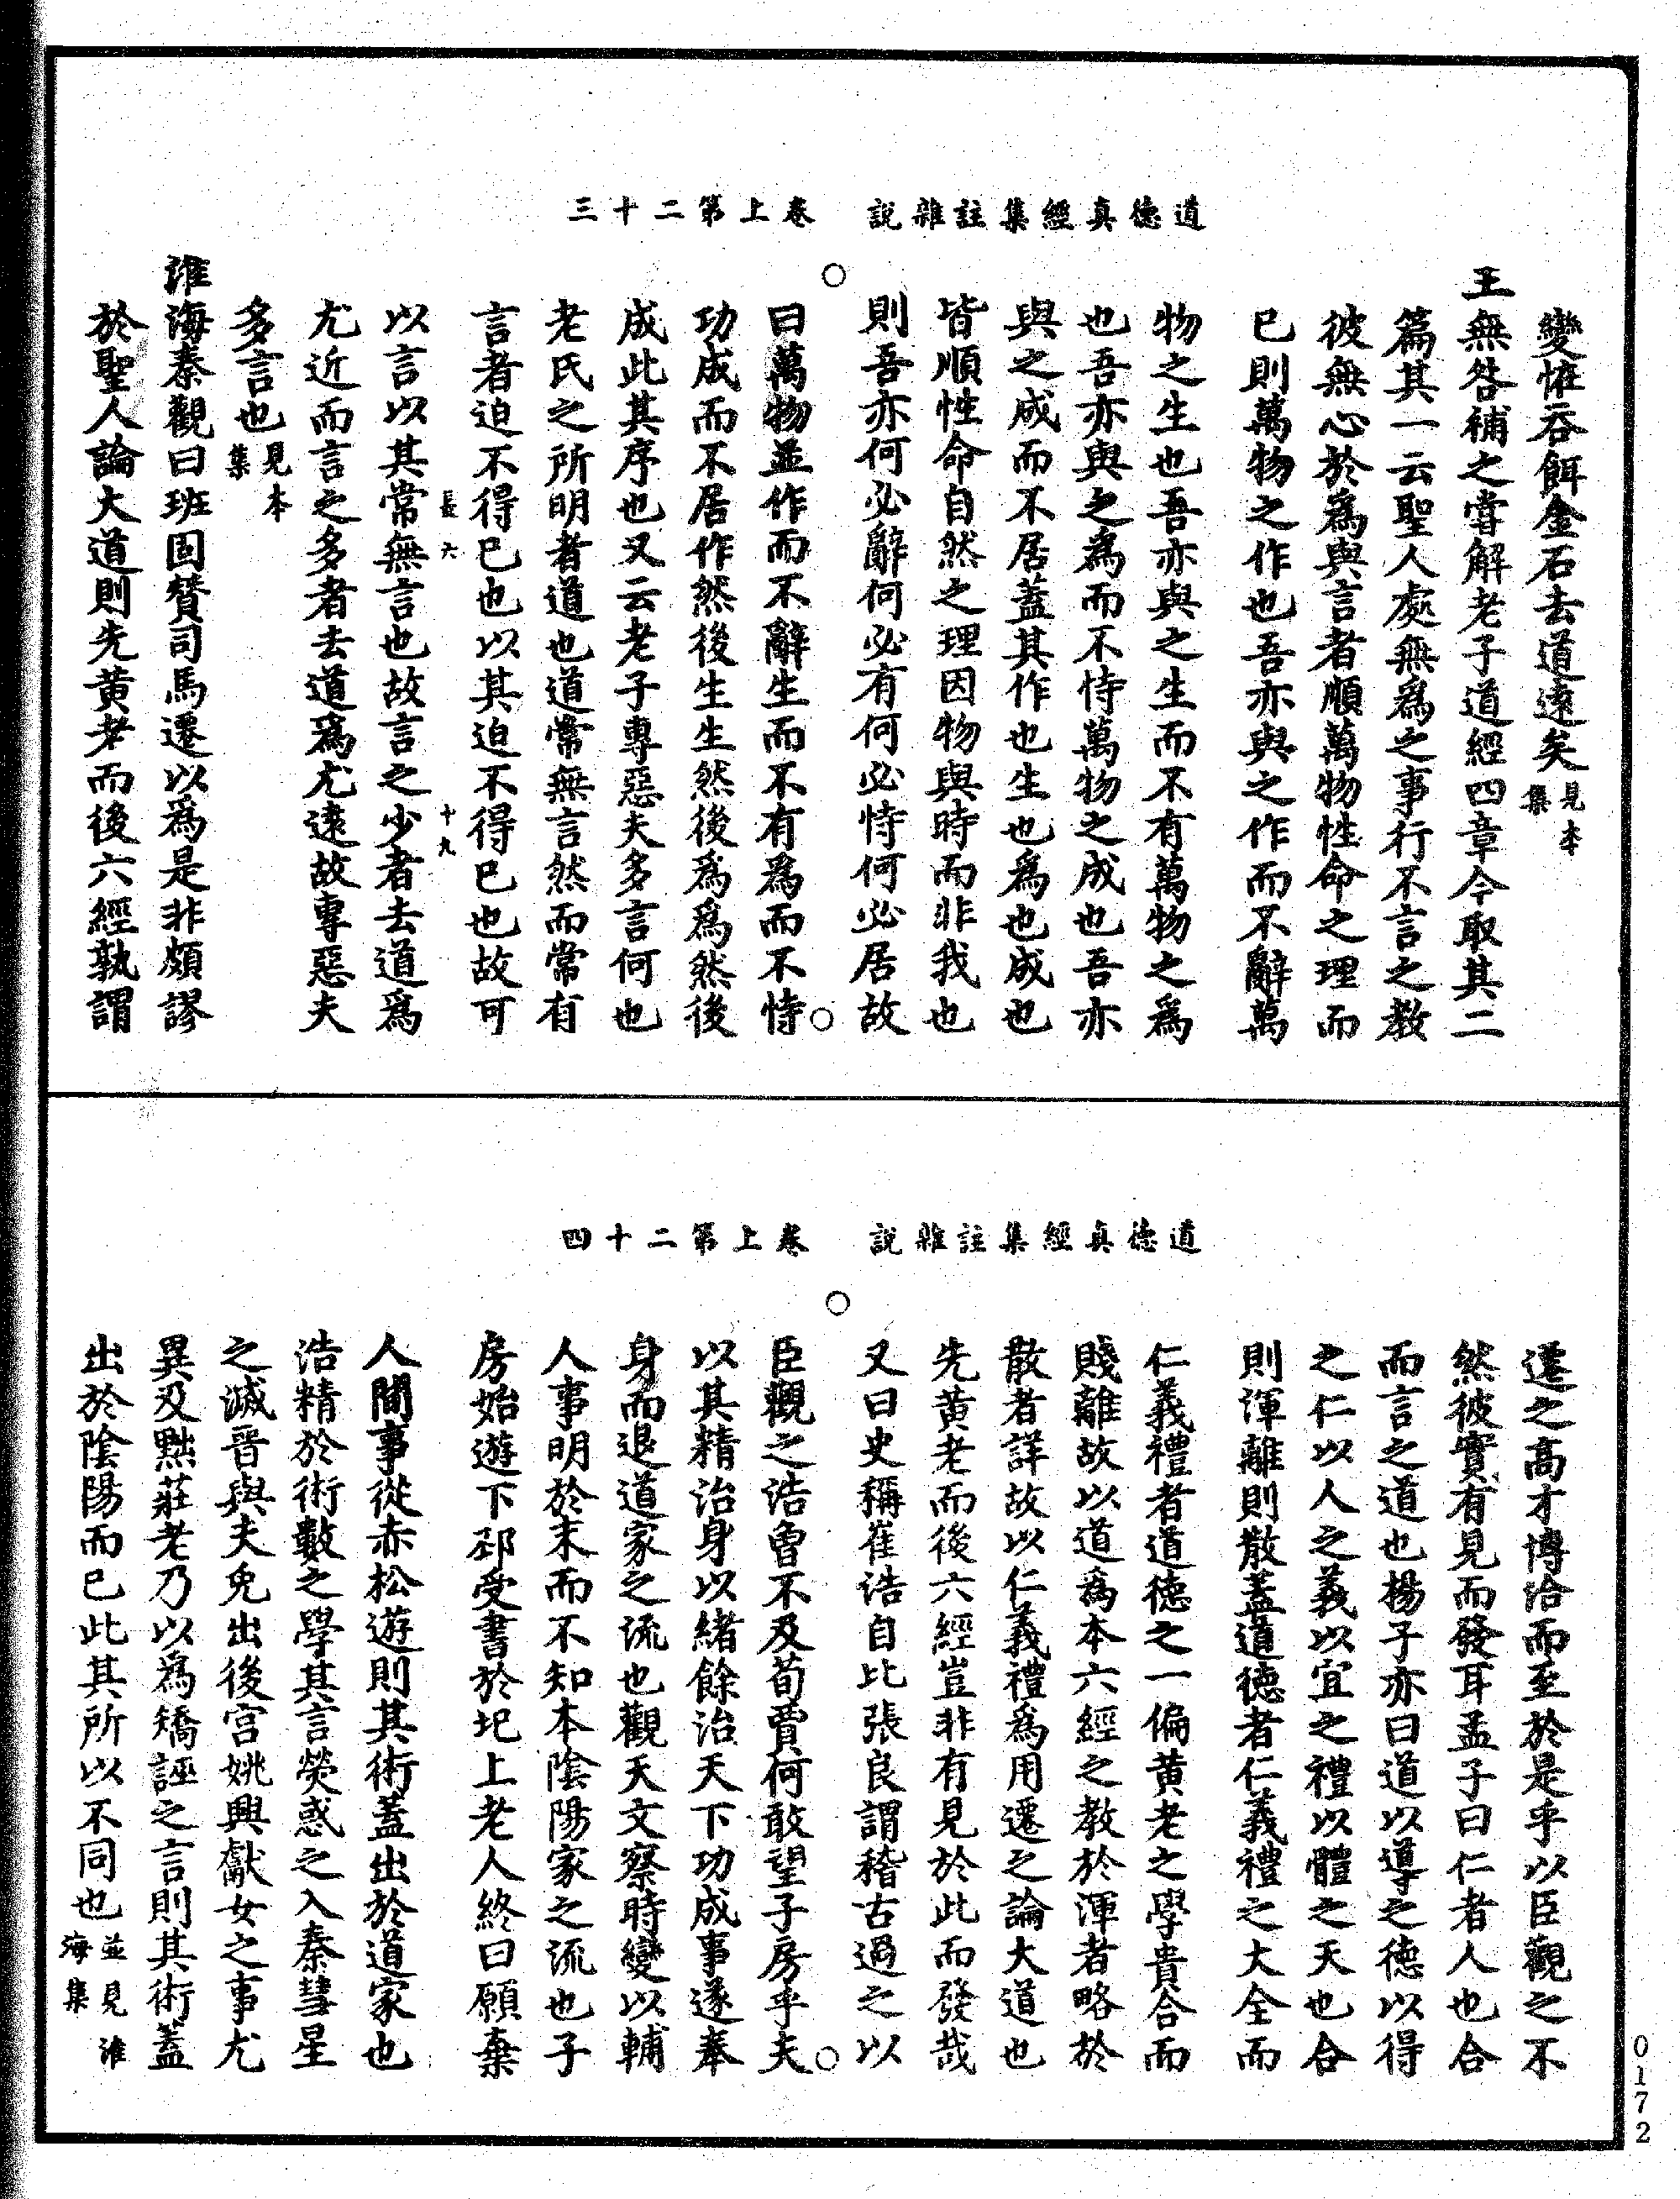 道德真經集註雜說　卷上第二十三
變怪吞餌金石去道遠矣見本集
王無咎補之嘗解老子道經四章今取其二
篇其一云聖人處無爲之事行不言之教
彼無心於爲與言者順萬物性命之理而
已則萬物之作也吾亦與之作而不辭萬
物之生也吾亦與之生而不有萬物之爲
也吾亦與之爲而不恃萬物之成也吾亦
與之成而不居蓋其作也生也爲也成也
皆順性命自然之理因物與時而非我也
則吾亦何必辭何必有何必恃何必居故
曰萬物並作而不辭生而不有爲而不恃
功成而不居作然後生生然後爲爲然後
成此其序也又云老子專惡夫多言何也
老氏之所明者道也道常無言然而常有
言者迫不得已也以其迫不得已也故可
長六　十九
以言以其常無言也故言之少者去道爲
尤近而言之多者去道爲尤遠故專惡夫
多言也見本集
淮海秦觀曰班固贊司馬遷以爲是非頗謬
於聖人論大道則先黄老而後六經孰謂
道德真經集註雜說　卷上第二十四
遷之高才博洽而至於是乎以臣觀之不
然彼實有見而發耳孟子曰仁者人也合
而言之道也揚子亦曰道以導之德以得
之仁以人之義以宜之禮以體之天也合
則渾離則散蓋道德者仁義禮之大全而
仁義禮者道德之一偏黄老之學貴合而
賤離故以道爲本六經之教於渾者略於
散者詳故以仁義禮爲用遷之論大道也
先黄老而後六經豈非有見於此而發哉
又曰史稱崔浩自比張良謂稽古過之以
臣觀之浩曾不及荀賈何敢望子房乎夫
以其精治身以緒餘治天下功成事遂奉
身而退道家之流也觀天文察時變以輔
人事明於末而不知本陰陽家之流也子
房始遊下邳受書於圯上老人終曰願棄
人間事從赤松遊則其術蓋出於道家也
浩精於術數之學其言熒惑之入秦彗星
之滅晉與夫兔出後宫姚興獻女之事尤
異及黜莊老乃以爲矯誣之言則其術蓋
出於陰陽而已此其所以不同也並見淮海集
0172